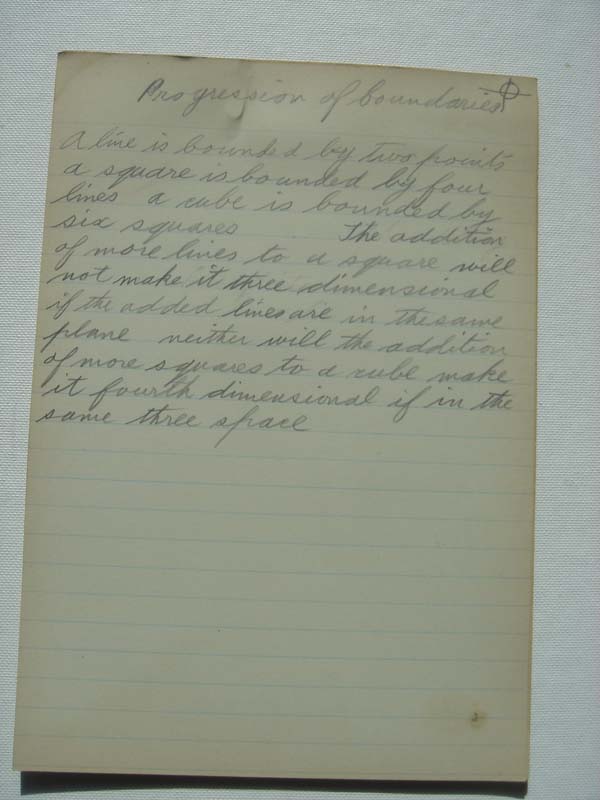 Progression of boundaries
A line is bounded by two points
a square is bounded by four
lines a cube is bounded by
six squares The addition
of more lines to a square will
not make it three dimensional
if the added lines are in the same
plane neither will the addition
of more squares to a cube make
it fourth dimensional if in the
same three space